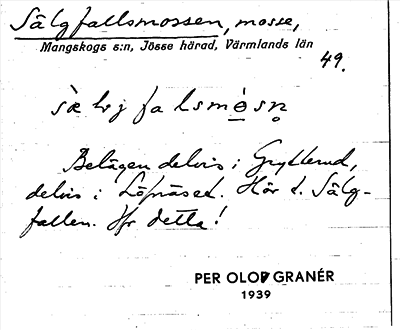 Sälgfallsmossen, mosse,
Mangskogs s:n, Jösse härad, Värmlands län
49.
Belägen delvis i Grytterud,
delvis i Löfnäset. Hör t. Sälg-
fallen. Jfr detta!
PER OLOF GRANÉR
1939